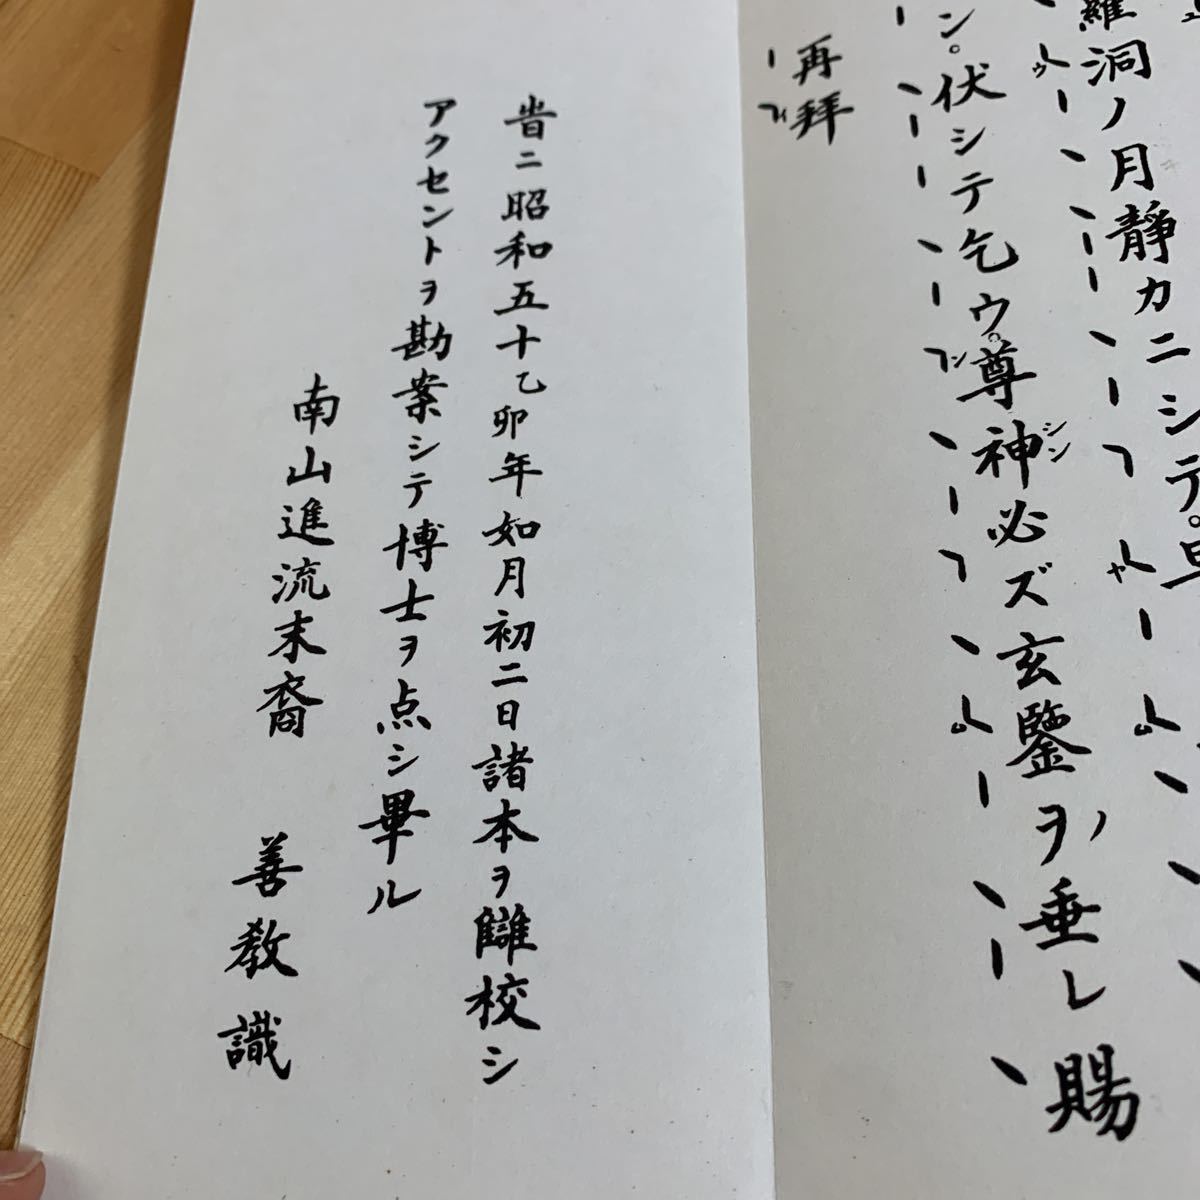 羅洞ノ月靜カニシテ。
ン。伏シテ乞ウ。尊神必ズ玄鑒ヲノ垂レ賜
シン
再拜
旹ニ昭和五十乙卯年如月初二日諸本ヲ讎校シ
アクセントヲ勘案シテ博士ヲ点シ畢ル
南山進流末裔 善教識